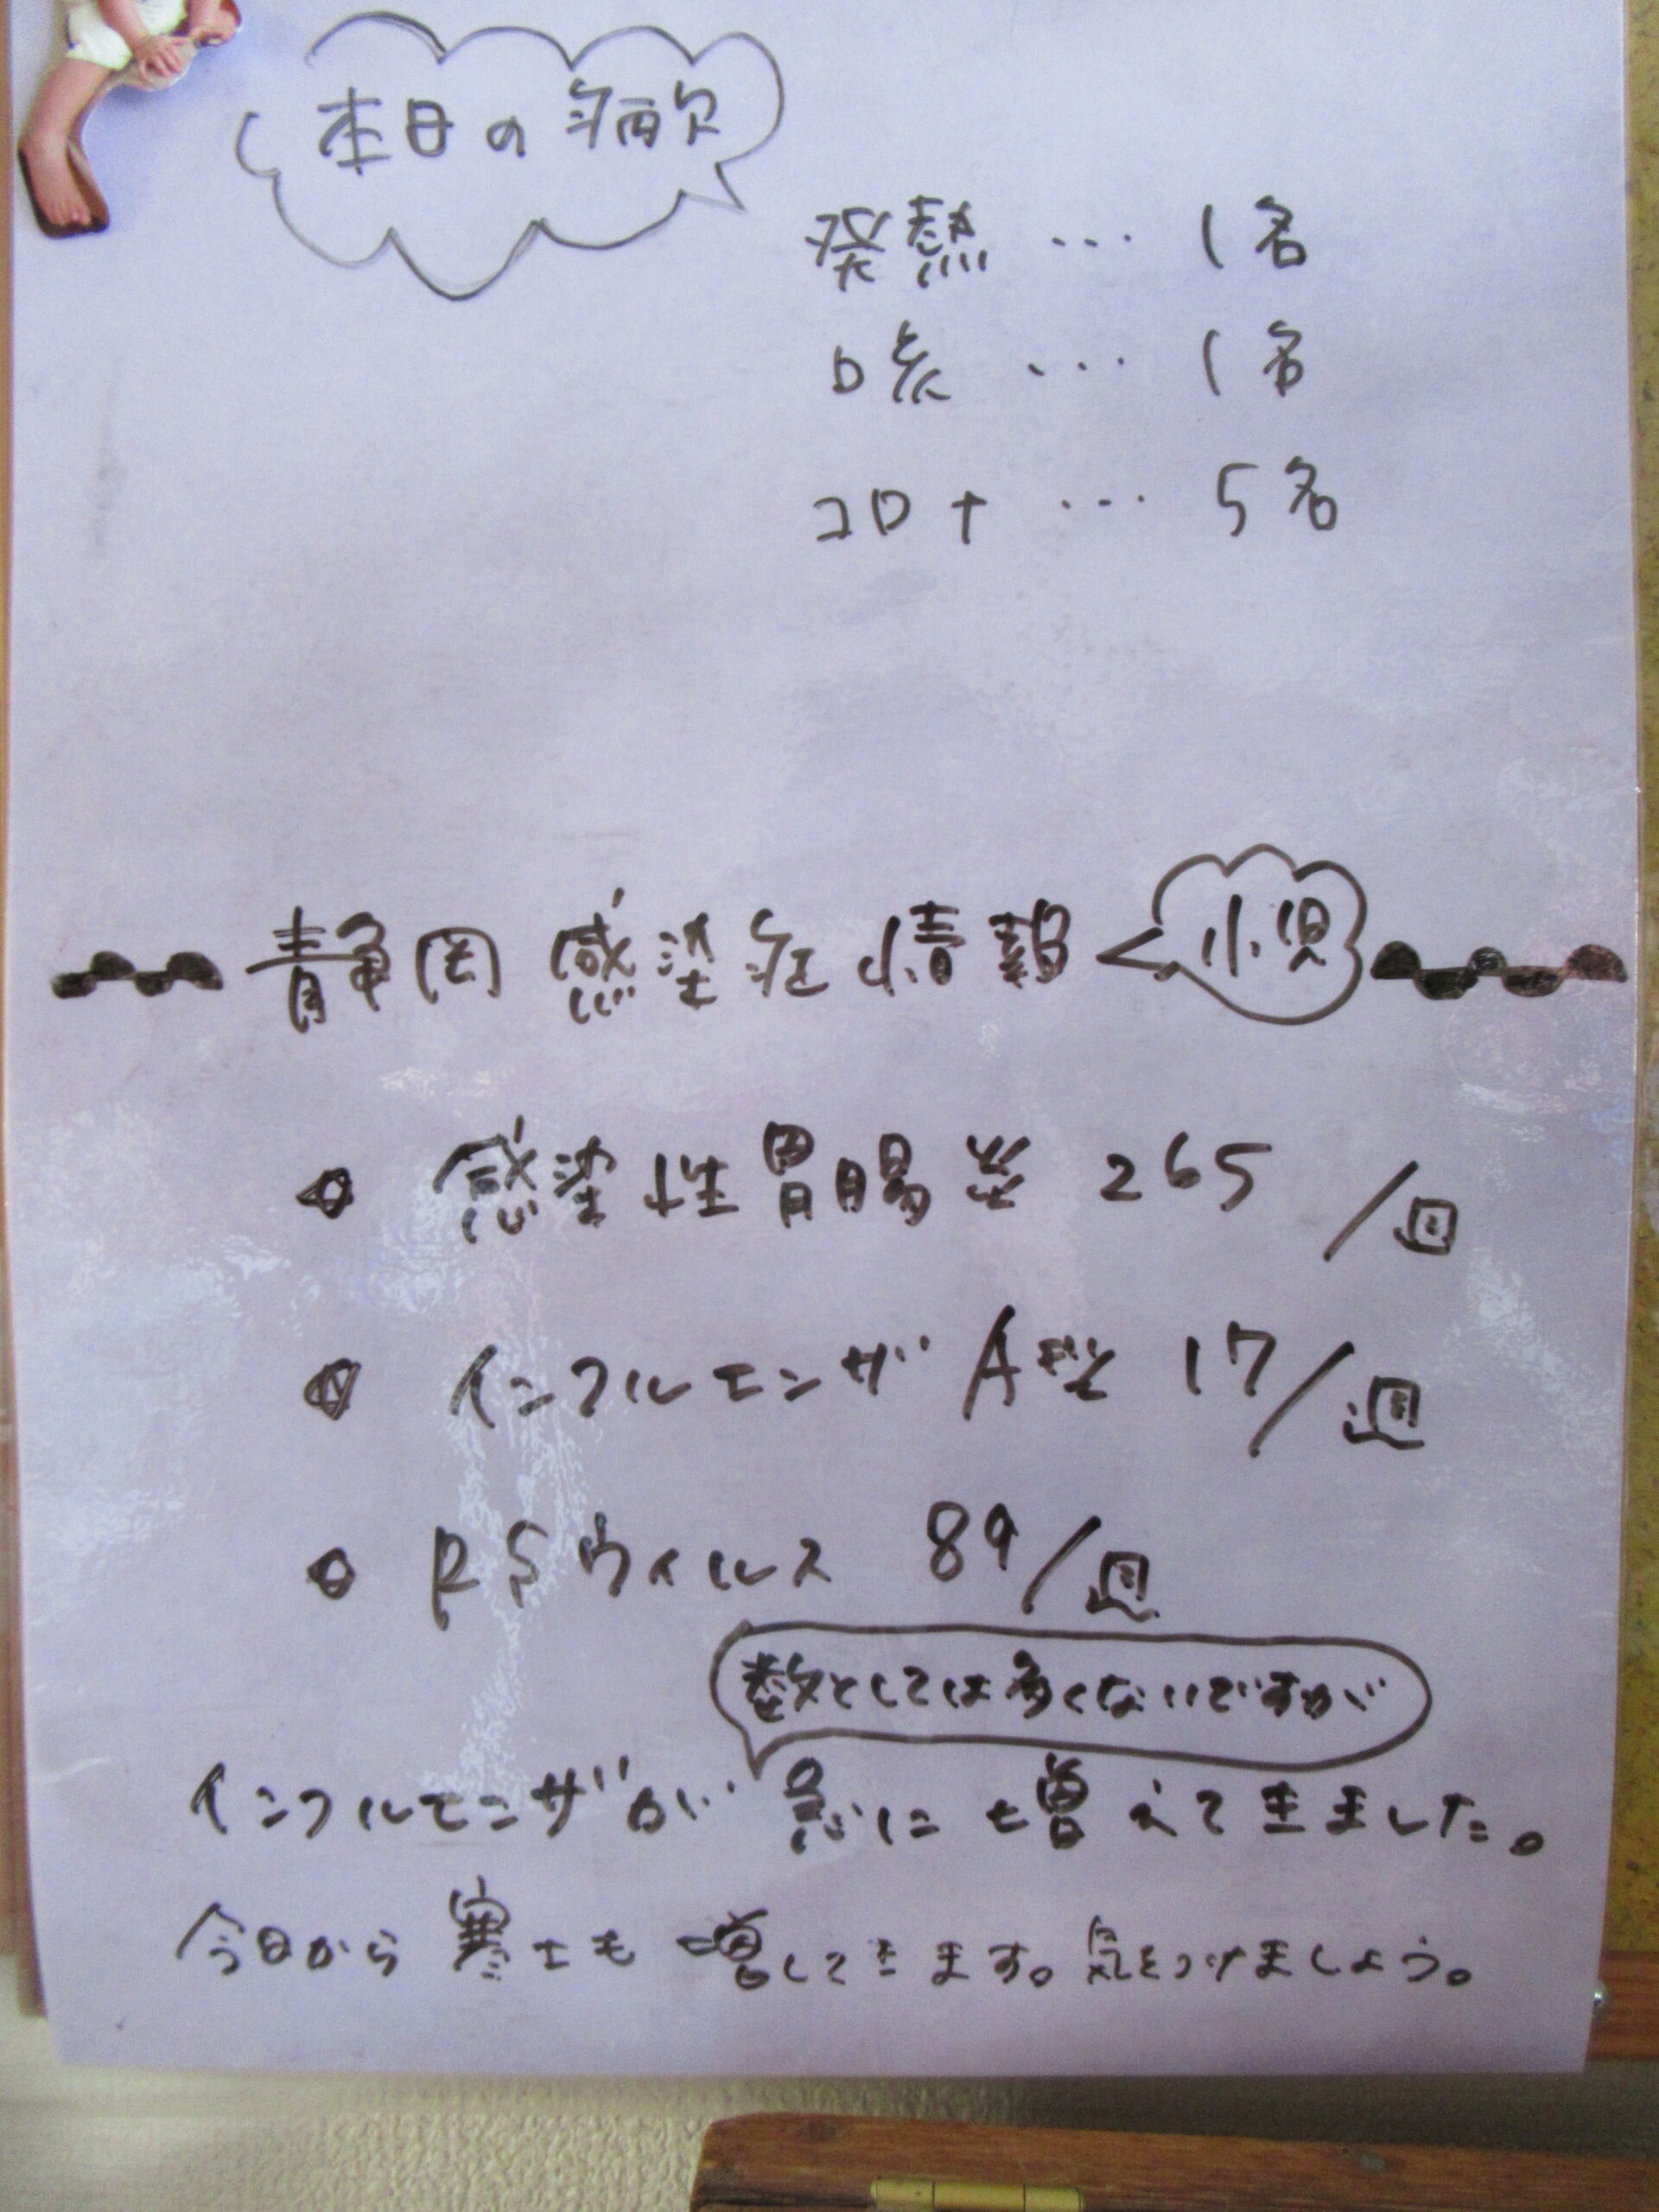 本日の病欠
発熱 … 1名
咳 … 1名
コロナ … 5名
静岡 感染症情報 小児
感染性胃腸炎 265 /週
インフルエンザ A型 17/週
RSウィルス 89/週
数としては多くないですが
インフルエンザが 急に 増えてきました。
今日から 寒さも 増してきます。気をつけましょう。